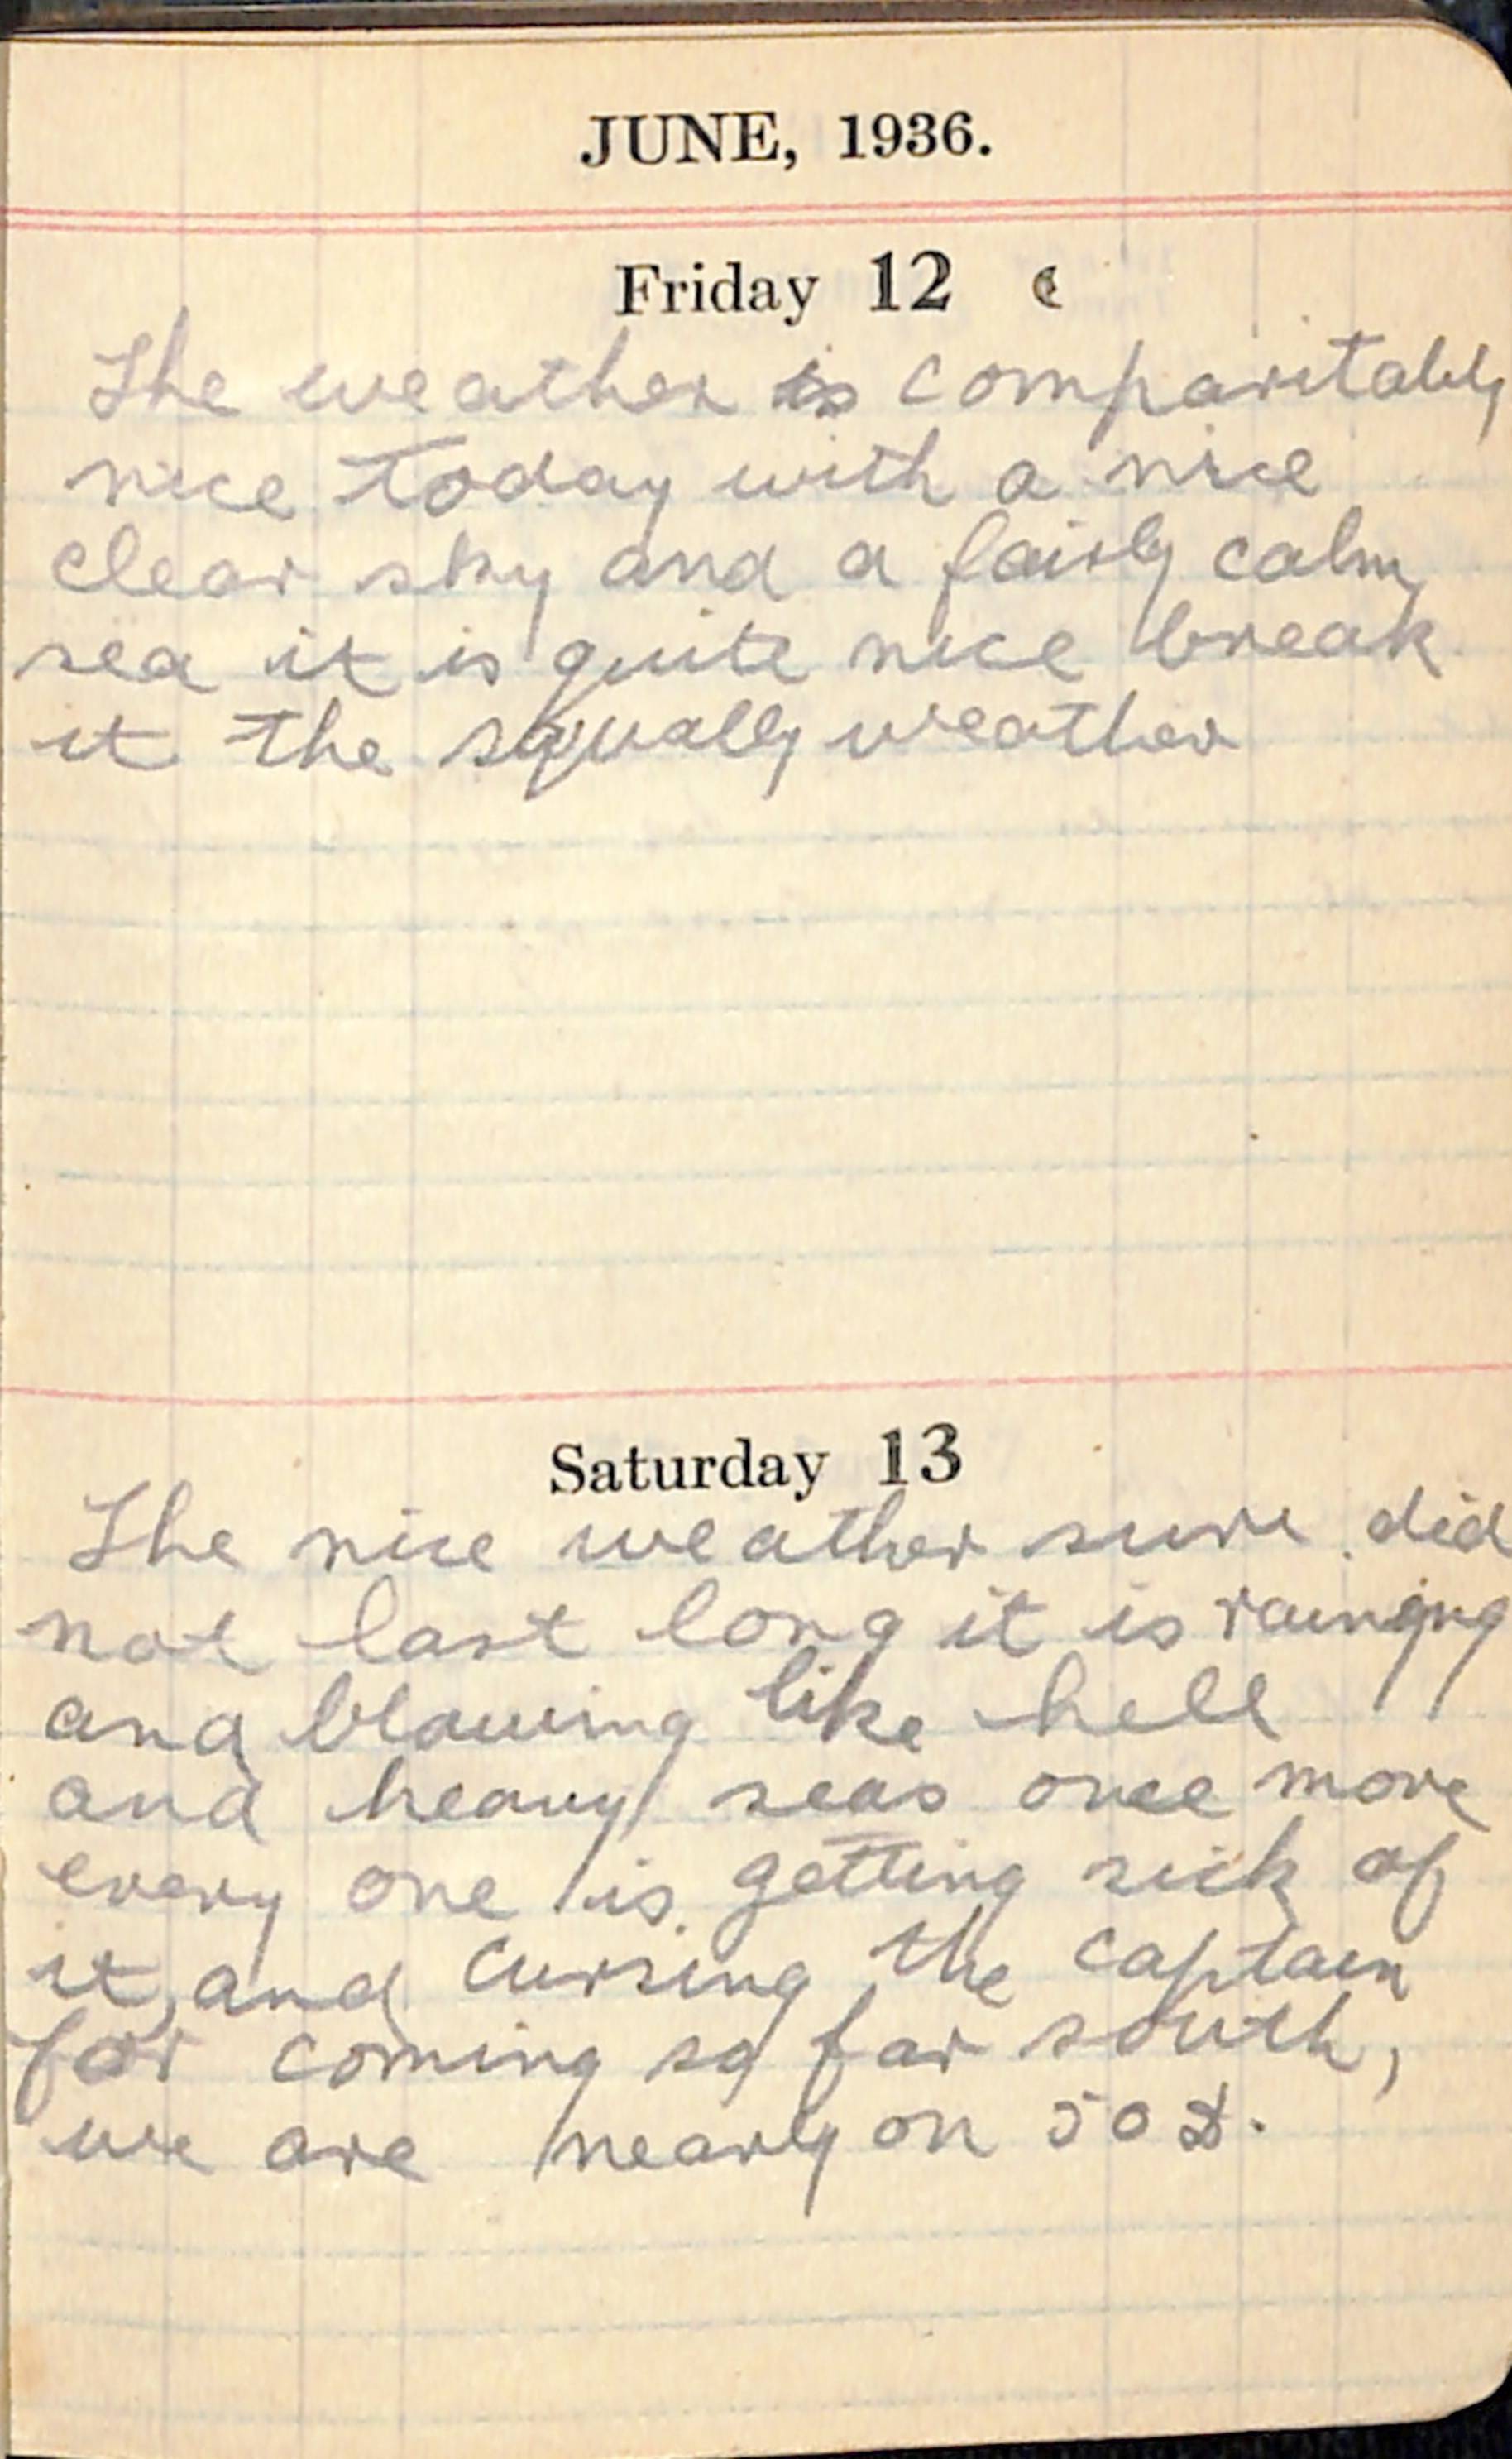 JUNE, 1936.
Friday 12 ☾
The weather is comparitably
nice today with a nice
clear sky and a fairly calm,
sea it is quite nice break
it the squally weather
Saturday 13
The nice weather sure did
not last long it is rainging
and blowing like hell
and heavy seas once more
every one is getting sick of
it, and cursing the captain
for coming so far south,
we are nearly on 50 S.